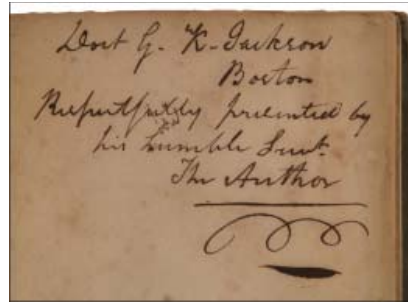 Doct G. K. Jackson
Boston
Respectfully presented by
his humble Servt.
The Author